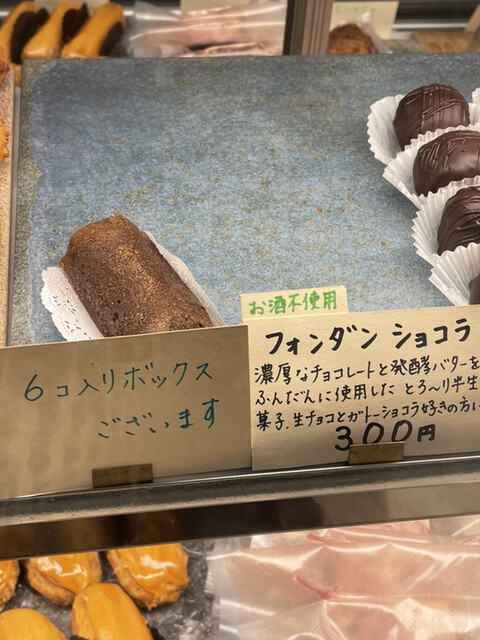 お酒不使用
フォンダン ショコラ
濃厚なチョコレートと発酵バターを
ふんだんに使用した とろ〜り半生
菓子。生チョコとガトーショコラ好きの方に
300円
6コ入りボックス
ございます